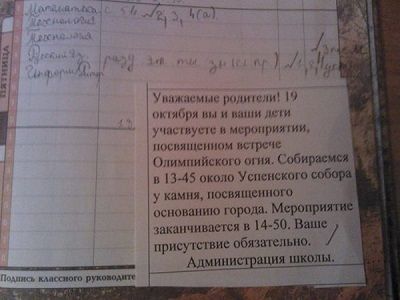 Математика с 54
Технология
Технология
Русский яз.
ПЯТНИЦА
19
Уважаемые родители! 19
октября вы и ваши дети
участвуете в мероприятии,
посвященном встрече
Олимпийского огня. Собираемся
в 13-45 около Успенского собора
у камня, посвященного
основанию города. Мероприятие
заканчивается в 14-50. Ваше
присутствие обязательно.
Администрация школы.
Подпись классного руководите